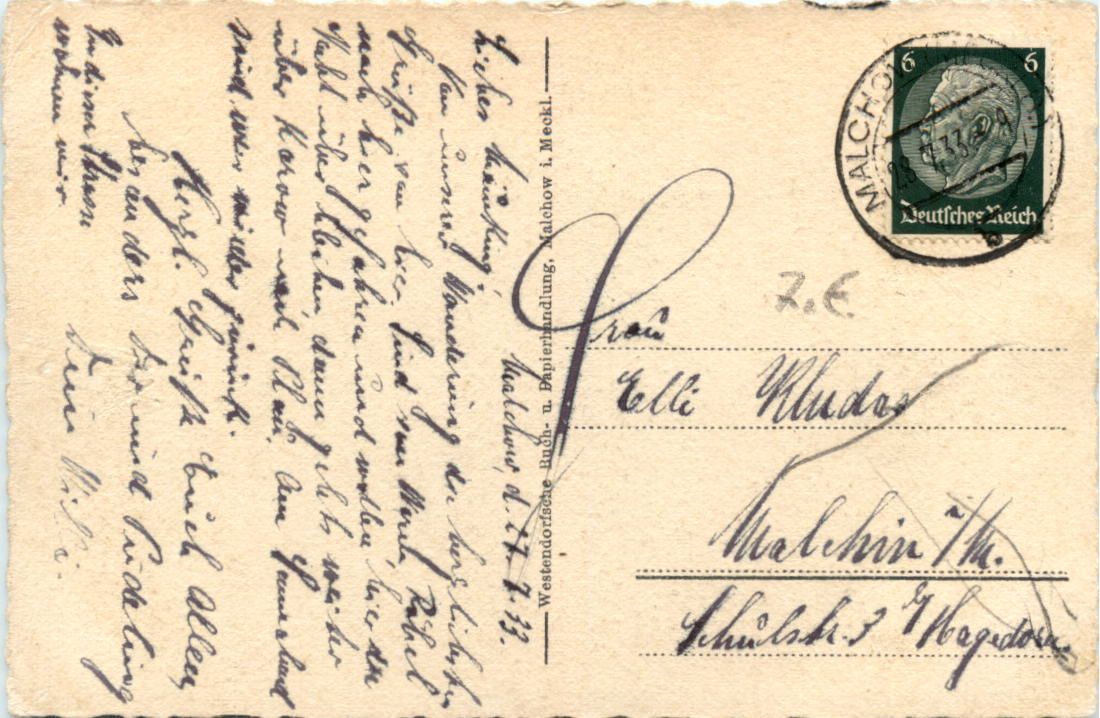 Malchow, d. 27. 7. 33.
Liebes Mäusking!
Von unserer Wanderung die herzlichsten
Grüße von hier. Sind von Waren, Röbel
nach hier gefahren und wollen hier die
Nacht über bleiben dann geht's weiter
über Karow nach Plau. Am Sonnabend
sind wir wieder zurück.
Herzl. Grüße Euch Allen,
besonders Dir und Püdeking
Dein Willi.
In dieser Strasse
wohnen wir
Westendorfsche Buch- u. Papierhandlung, Malchow i. Meckl.
MALCHOW
28.7.33
b
6 6
Deutsches Reich
Z.E.
Frau
Elli Kludas
Malchin i/M.
Schulstr. 3 b/Hagedorn